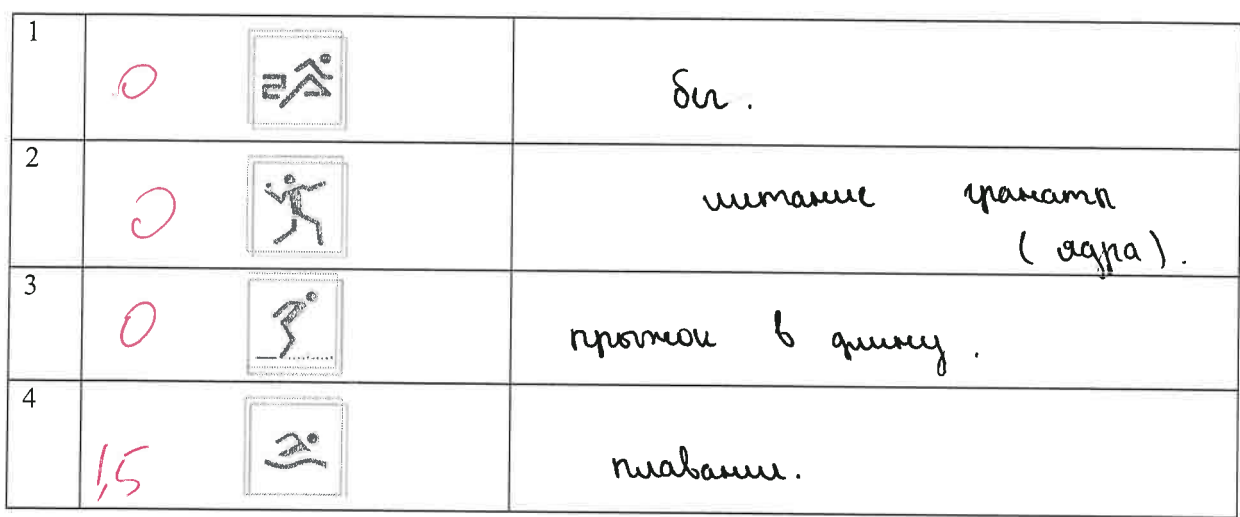 1
0
бег.
2
0
метание гранаты
(ядра).
3
0
прыжок в длину.
4
1,5
плавание.